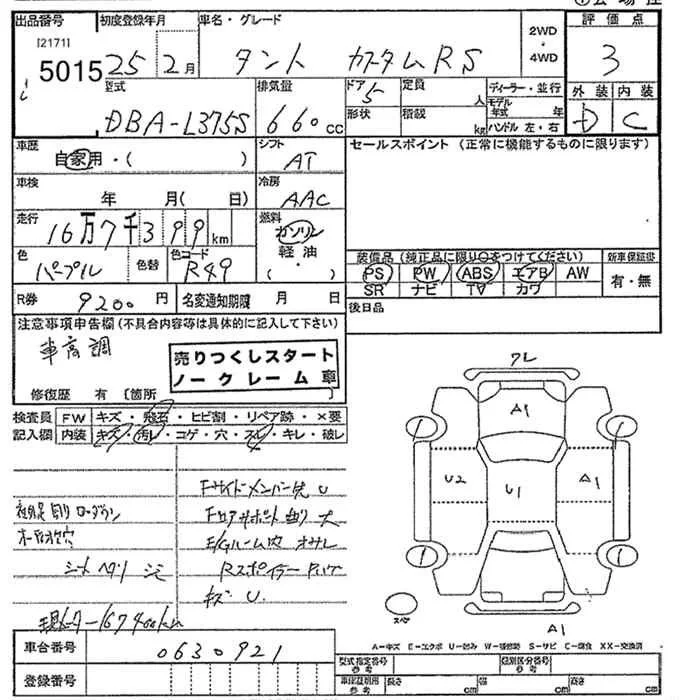 出品番号 初度登録年月 車名・グレード 2WD・4WD 評価点
[2171]
5015 25 2月 タント カスタムRS 3
型式 排気量 ドア 定員 ディーラー・並行 外装 内装
DBA-L375S 660cc 5 人 モデル年式 年
形状 積載 kg ハンドル 左・右 D C
車歴 シフト セールスポイント (正常に機能するものに限ります)
自家用・( ) AT
車検 冷房
年 月( 日) AAC
走行 燃料
16万7千399km ガソリン・軽油・( )
色 色替 色コード 装備品 (純正品に限り○をつけてください) 新車保証書
パープル R49 PS PW ABS エアB AW 有・無
SR ナビ TV カワ
R券 9200円 名変通知期限 月 日 後日品
注意事項申告欄(不具合内容等は具体的に記入して下さい)
車高調
売りつくしスタート
ノークレーム車
修復歴 有 [箇所
検査員 FW キズ・飛石・ヒビ割・リペア跡・×要
記入欄 内装 キズ・汚レ・コゲ・穴・スレ・キレ・破レ
FサイドメンバーU
Fコアサポート
E/Gルーム内
Rスポイラー
シートヘタリ
キズ U
ワレ
A1
U2 U1 A1
1 1 1 1
スペア
A1
A-キズ E-エクボ U-凹み W-補修跡 S-サビ C-腐食 XX-交換済
車台番号 0630921
登録番号
型式指定番号 参考 類別区分番号 参考
車証記載用 参考 長さ cm 幅 cm 高さ cm